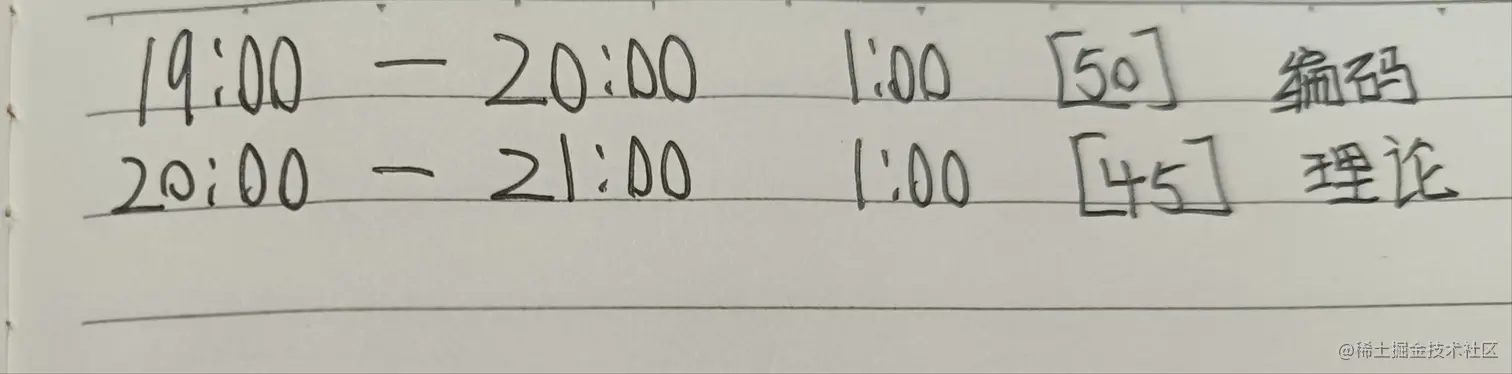 19:00 — 20:00 1:00 [50] 编码
20:00 — 21:00 1:00 [45] 理论
@稀土掘金技术社区